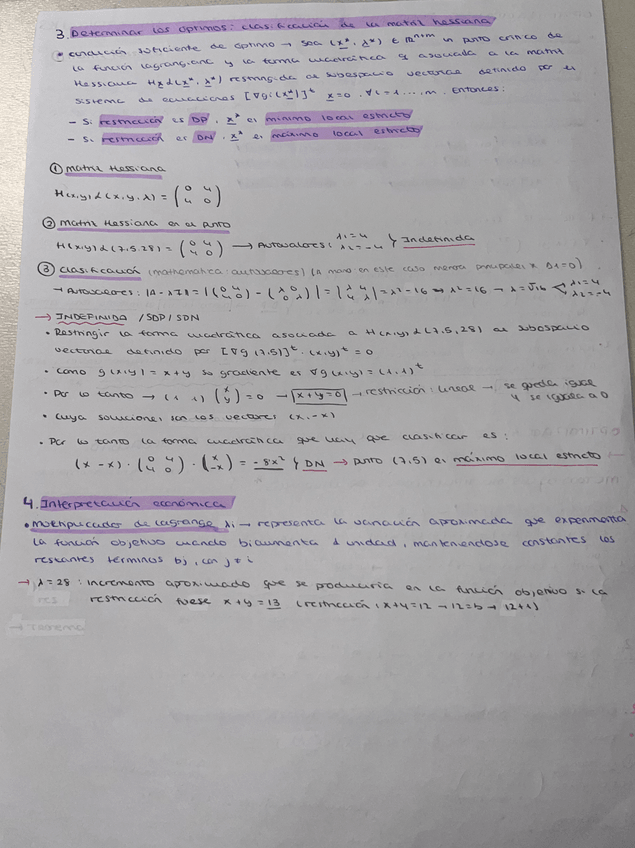 3. Determinar los óptimos: clasificación de la matriz hessiana
• condición suficiente de óptimo → sea (x*, λ*) ∈ ℝⁿ⁺ᵐ un punto crítico de
la función lagrangiana y la forma cuadrática q asociada a la matriz
Hessiana Hxℒ(x*, λ*) restringida al subespacio vectorial definido por el
sistema de ecuaciones [∇gi(x*)]ᵗ x=0 . ∀i=1....m. Entonces:
- Si restricción es DP, x* es mínimo local estricto
- Si restricción es DN, x* es máximo local estricto
① Matriz Hessiana
H(x,y)ℒ(x,y,λ) = (0 4 / 4 0)
② Matriz Hessiana en el punto
H(x,y)ℒ(7,5,28) = (0 4 / 4 0) → Autovalores: λ1=4 λ2=-4 } Indefinida
③ Clasificación (mathematica: autovalores) (A mano en este caso menores principales x D1=0)
→ Autovalores: |A-λI| = |(0 4 / 4 0) - (λ 0 / 0 λ)| = |λ 4 / 4 λ| = λ²-16 λ²=16 → λ=√16 < λ1=4 λ2=-4
→ INDEFINIDA /SDP/SDN
• Restringir la forma cuadrática asociada a H(x,y)ℒ(7,5,28) al subespacio
vectorial definido por [∇g(7,5)]ᵗ·(x,y)ᵗ=0
• como g(x,y)=x+y su gradiente es ∇g(x,y)=(1,1)ᵗ
• Por lo tanto → (1 1) (x / y) = 0 → x+y=0 → restricción: lineal → se queda igual y se iguala a 0
• cuya soluciones son los vectores (x,-x)
• Por lo tanto la forma cuadrática que hay que clasificar es:
(x -x) · (0 4 / 4 0) · (x / -x) = -8x² } DN → punto (7,5) es máximo local estricto
4. Interpretación económica
• Multiplicador de lagrange λi → representa la variación aproximada que experimenta
la función objetivo cuando bi aumenta 1 unidad, manteniéndose constantes los
restantes términos bj, con j≠i
→ λ=28: incremento aproximado que se produciría en la función objetivo si la
restricción fuese x+y=13 (restricción: x+y=12 → 12=b → 12+1)